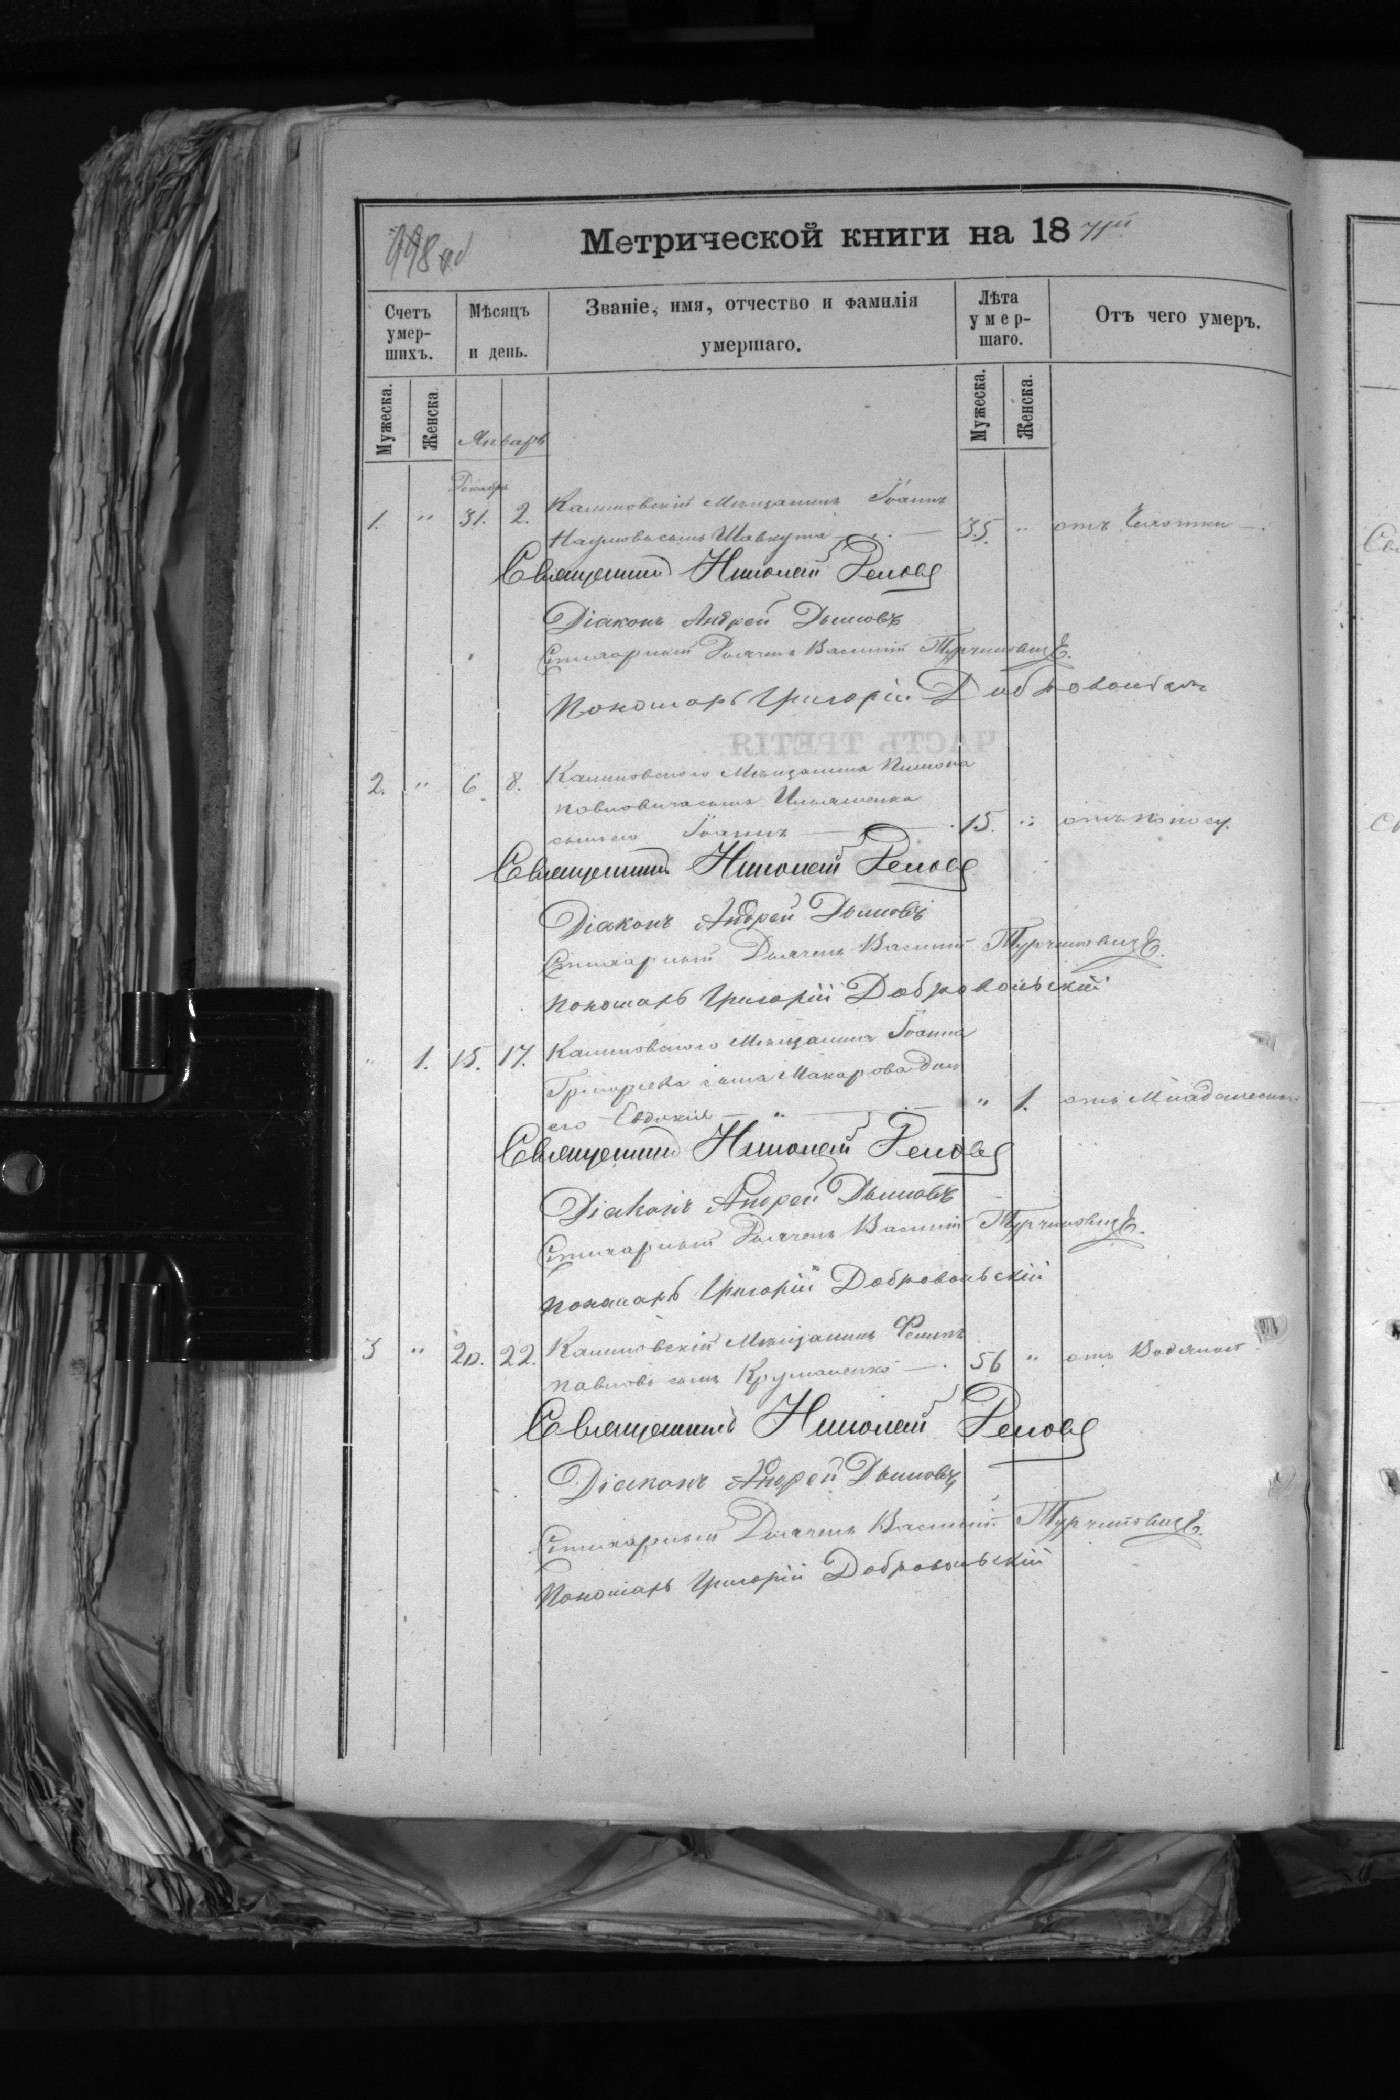 998 об
Метрической книги на 18 71й
Счетъ умер- шихъ.
Мѣсяцъ и день.
Званіе, имя, отчество и фамилія умершаго.
Лѣта умер- шаго.
Отъ чего умеръ.
Мужеска.
Женска
Мужеска.
Женска.
Январь
Декабря
1. " 31. 2. Климовскій Мѣщанинъ Іоаннъ
Наумовъ сынъ Шавкута 35. " отъ Чахотки
Священникъ Николай
Діаконъ Андрей Дымовъ
Стихарный Дьячекъ Василій Турчиновичъ
Пономарь Григорій Добровольскій
ЧАСТЬ ТРЕТІЯ
2. " 6. 8. Климовского Мѣщанина
Павловича сына
сынъ его Іоаннъ 15. " отъ поносу.
Священникъ Николай
Діаконъ Андрей Дымовъ
Стихарный Дьячекъ Василій Турчиновичъ
пономарь Григорій Добровольскій
" 1. 15. 17. Климовского Мѣщанина Іоанна
Григорьева сына Макарова дочь
его Евдокія " 1. отъ Младенческой
Священникъ Николай
Діаконъ Андрей Дымовъ
Стихарный Дьячекъ Василій Турчиновичъ
пономарь Григорій Добровольскій
3 " 20. 22. Климовскій Мѣщанинъ
павловъ сынъ 56 " отъ Водяной
Священникъ Николай
Діаконъ Андрей Дымовъ
Стихарный Дьячекъ Василій Турчиновичъ
Пономарь Григорій Добровольскій